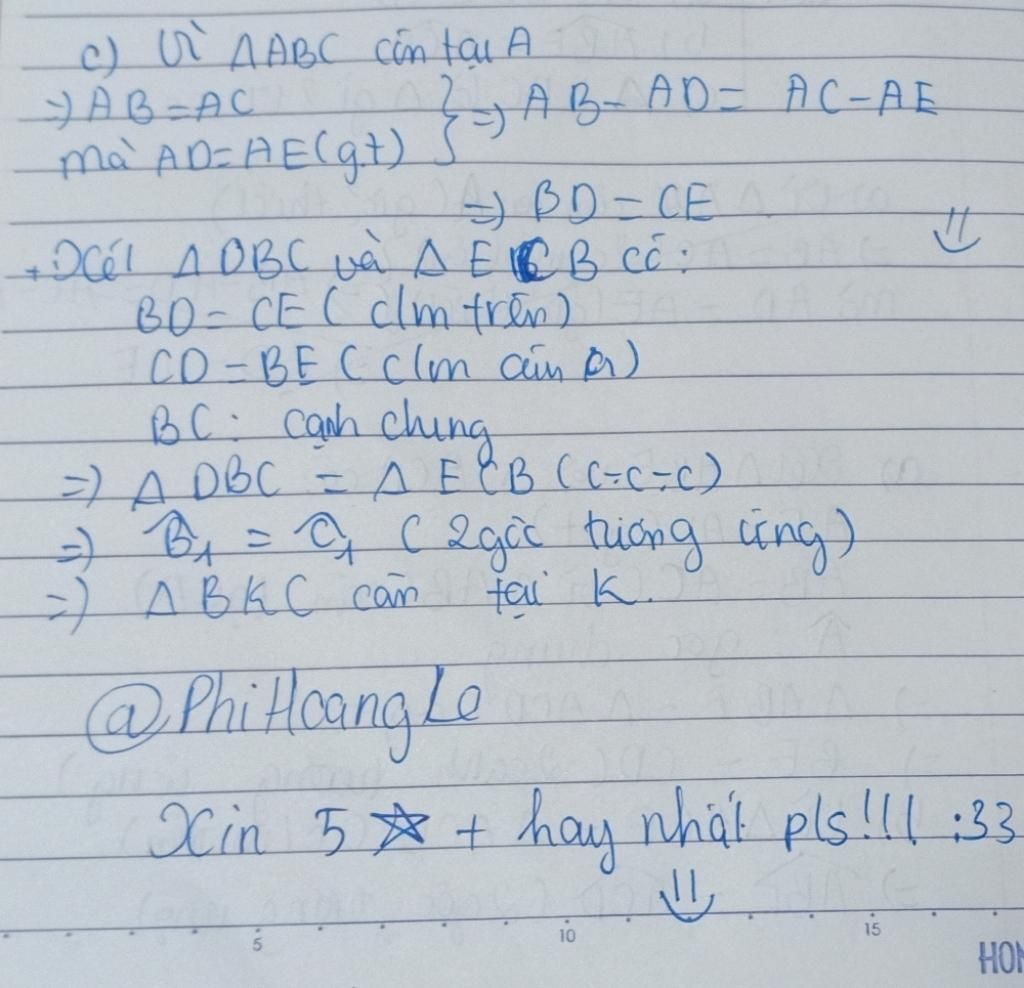 c) Vì ΔABC cân tại A
=> AB = AC } => AB - AD = AC - AE
mà AD = AE (g.t)
=> BD = CE
+ Xét ΔDBC và ΔECB có:
BD = CE (c/m trên)
CD = BE (c/m câu a)
BC: cạnh chung
=> ΔDBC = ΔECB (c-c-c)
=> B̂₁ = Ĉ₁ (2 góc tương ứng)
=> ΔBKC cân tại K.
@PhiHoangLe
Xin 5 ☆ + hay nhất pls!!! :33
5 10 15
HON